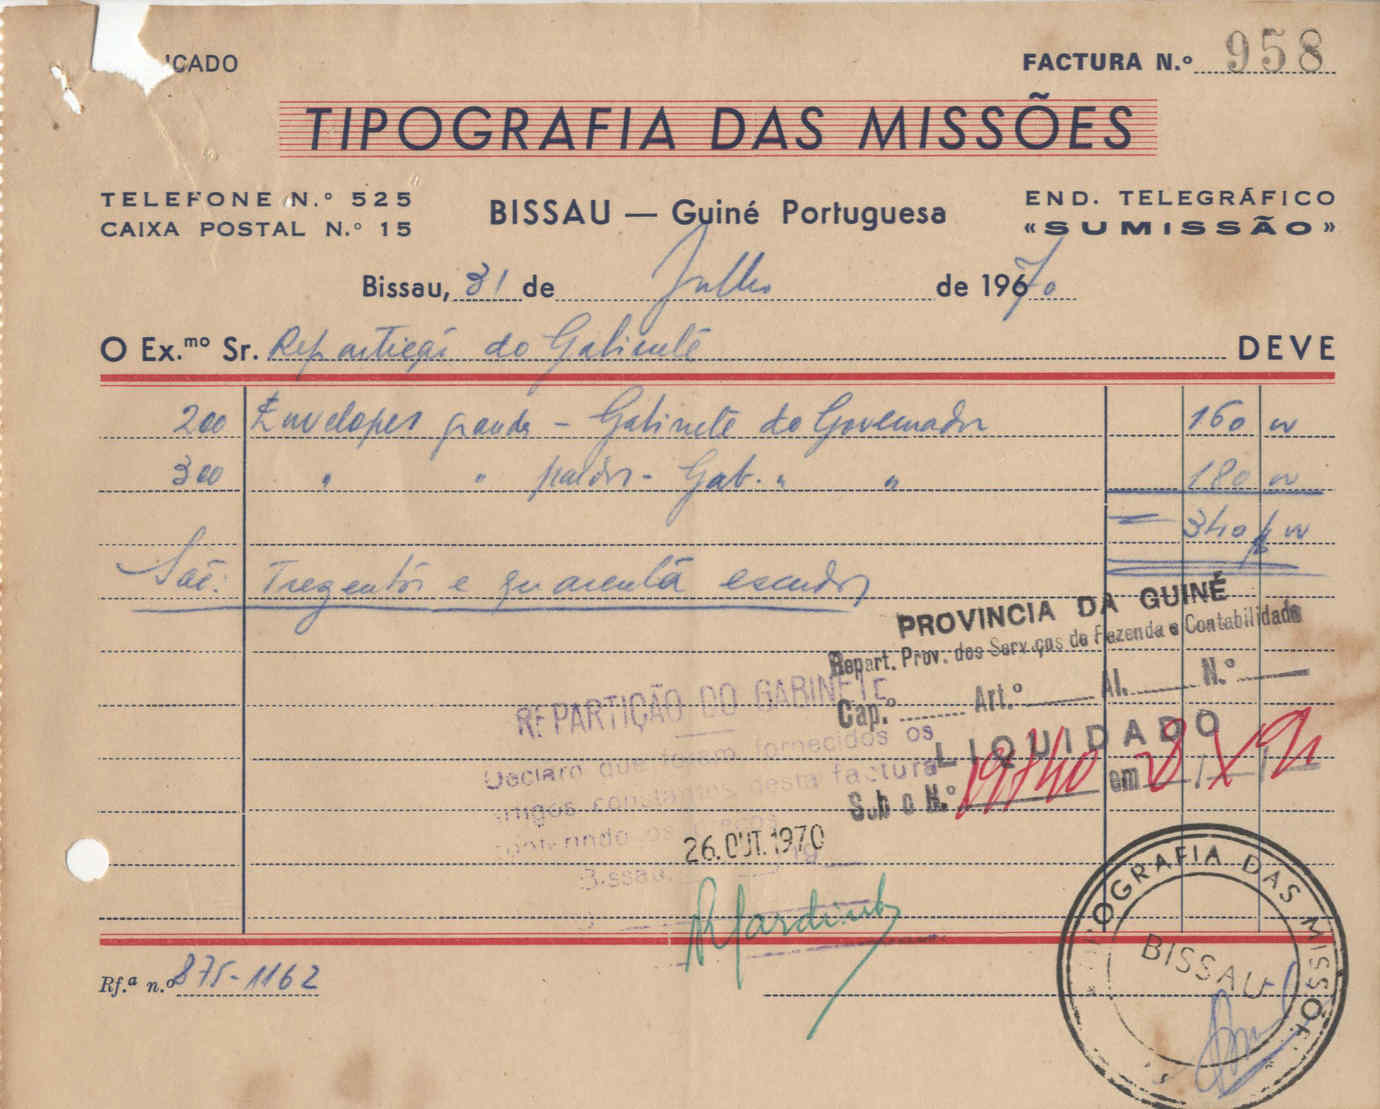 ICADO
FACTURA N.º 958
TIPOGRAFIA DAS MISSÕES
TELEFONE N.º 525
CAIXA POSTAL N.º 15
BISSAU — Guiné Portuguesa
END. TELEGRÁFICO
«SUMISSÃO»
Bissau, 31 de Julho de 1970
O Ex.mo Sr. Repartição do Gabinete DEVE
200 Envelopes grandes - Gabinete do Governador 160
300 " " - Gab. " " 180
340
São: Trezentos e quarenta escudos
PROVINCIA DA GUINÉ
Repart. Prov. dos Serviços de Fazenda e Contabilidade
Cap.º Art.º Al. N.º
LIQUIDADO
Sub o N.º em
REPARTIÇÃO DO GABINETE
Declaro que foram fornecidos os
artigos constantes desta factura
conferindo os preços
Bissau, 19
26. OUT. 1970
Rf.ª n.º 875-1162
TIPOGRAFIA DAS MISSÕES
BISSAU